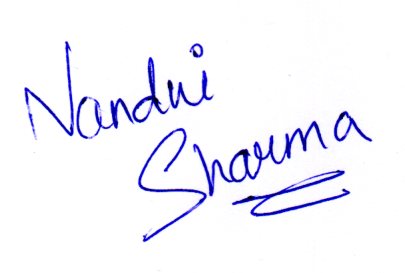 Nandni
Sharma